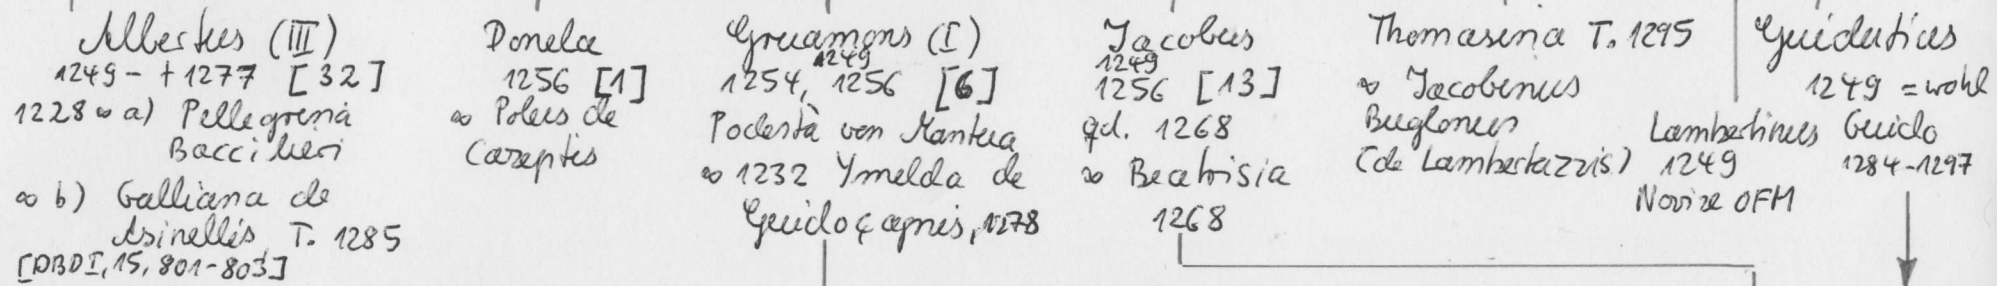 Albertus (III)
1249 - † 1277 [32]
1228 ∞ a) Pellegrina
Baccilieri
∞ b) Galliana de
Asinellis T. 1285
[DBDI, 15, 801-803]
Donela
1256 [1]
∞ Polus de
Carceptis
Gruamons (I)
1249
1254, 1256 [6]
Podestà von Mantua
∞ 1232 Ymelda de
Guidoçagnis, 1278
Jacobus
1249
1256 [13]
qd. 1268
∞ Beatrisia
1268
Thomasina T. 1295
∞ Jacobinus
Buglonus
(de Lambertazzis)
Lambertinus
1249
Novize OFM
Guidutius
1249 = wohl
Guido
1284-1297